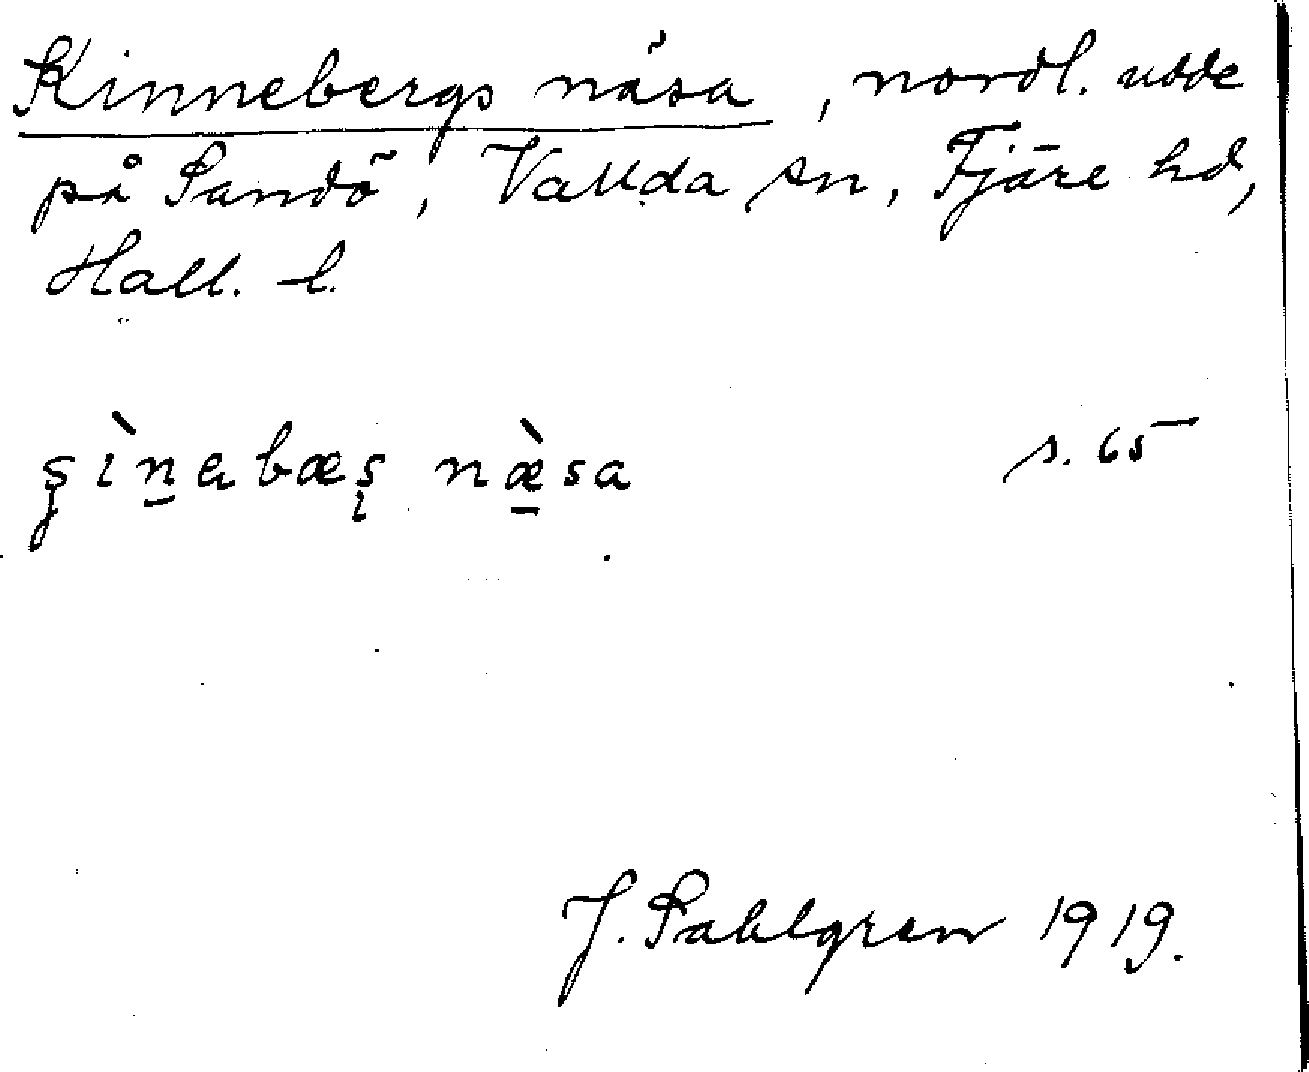 Kinnebergs näsa, nordl. udde
på Sandö, Vallda sn, Fjäre hd,
Hall. l.
ʂìn̲ebæʂ næ̲̀sa s. 65
J. Sahlgren 1919.